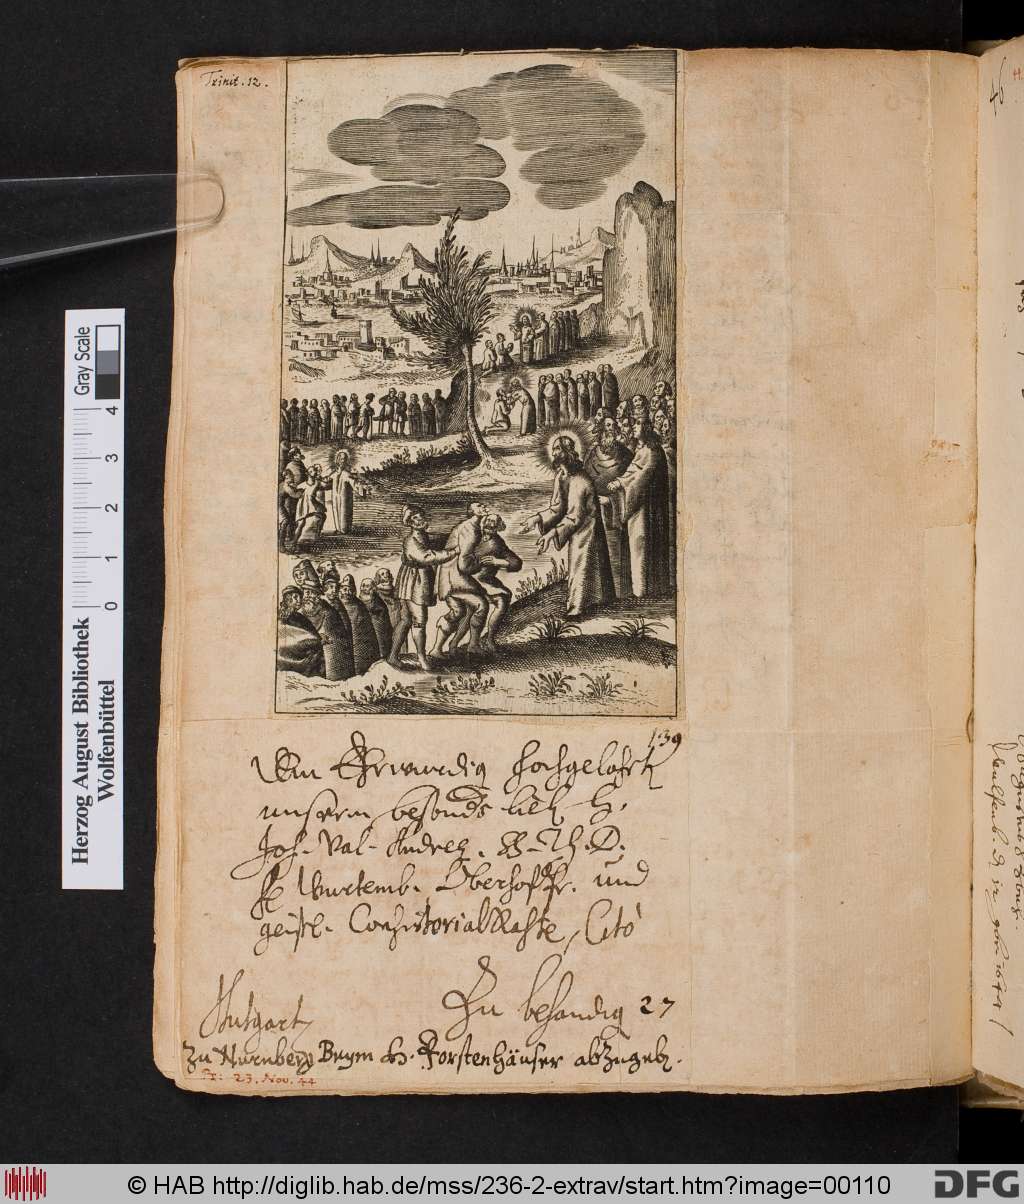 Trinit. 12.
139
Dem Ehrwürdig Hochgelahrt
unserm besonders lieb H.
Joh. Val. Andreæ. SS. Th. D.
Fl Würtemb. Oberhofpr. und
geistl. Consistorial Rahte, Cito
Zu behandig 27
Stutgart
Zu Nurnberg Beym H. Forstenhäuser abZugeb.
23. Nov. 44
Herzog August Bibliothek
Wolfenbüttel
Gray Scale
0 1 2 3 4
© HAB http://diglib.hab.de/mss/236-2-extrav/start.htm?image=00110
DFG